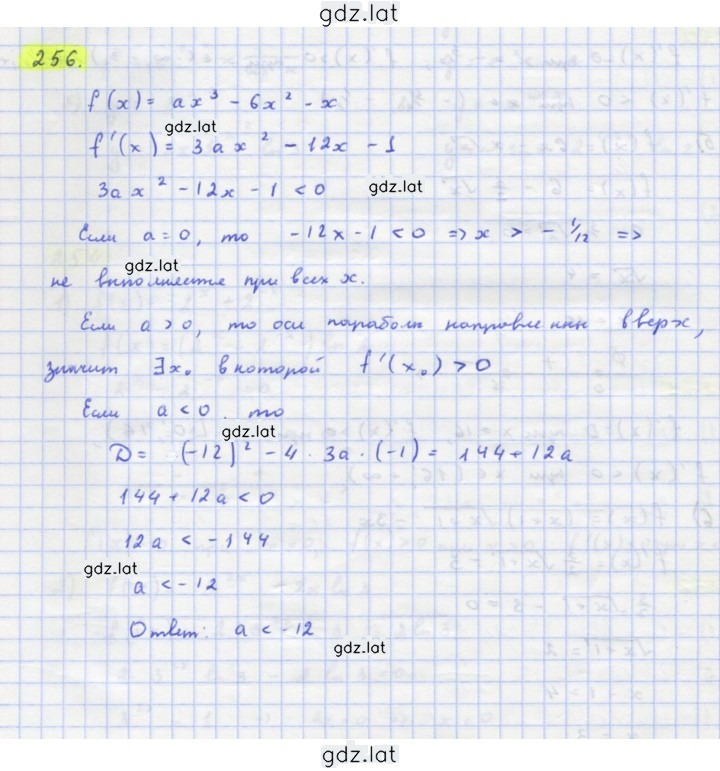 gdz.lat
256.
f(x) = ax³ - 6x² - x
gdz.lat
f'(x) = 3ax² - 12x - 1
3ax² - 12x - 1 < 0 gdz.lat
Если a = 0, то -12x - 1 < 0 => x > -1/12 =>
gdz.lat
не выполняется при всех x.
Если a > 0, то оси параболы направлены вверх,
значит ∃x₀ в которой f'(x₀) > 0
Если a < 0, то
gdz.lat
D = (-12)² - 4 · 3a · (-1) = 144 + 12a
144 + 12a < 0
12a < -144
gdz.lat
a < -12
Ответ: a < -12
gdz.lat
gdz.lat